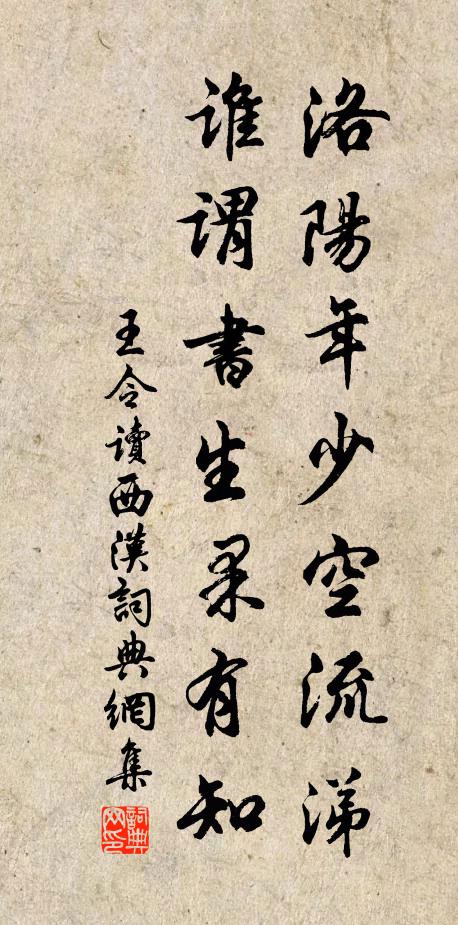 洛陽年少空流涕
誰謂書生果有知
王令讀西漢詞典網集
詞典網印